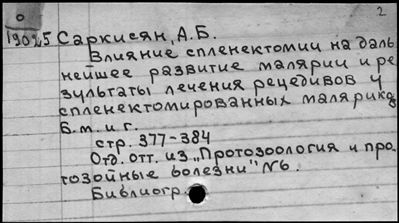 2
О
19025 Саркисян, А.Б.
Влияние спленектомии на даль
нейшее развитие малярии и ре
зультаты лечения рецедивов у
спленектомированных малярико
Б.м. и г.
стр. 377-384
Отд. отт. из „Протозоология и про
тозойные болезни" №6.
Библиогр.